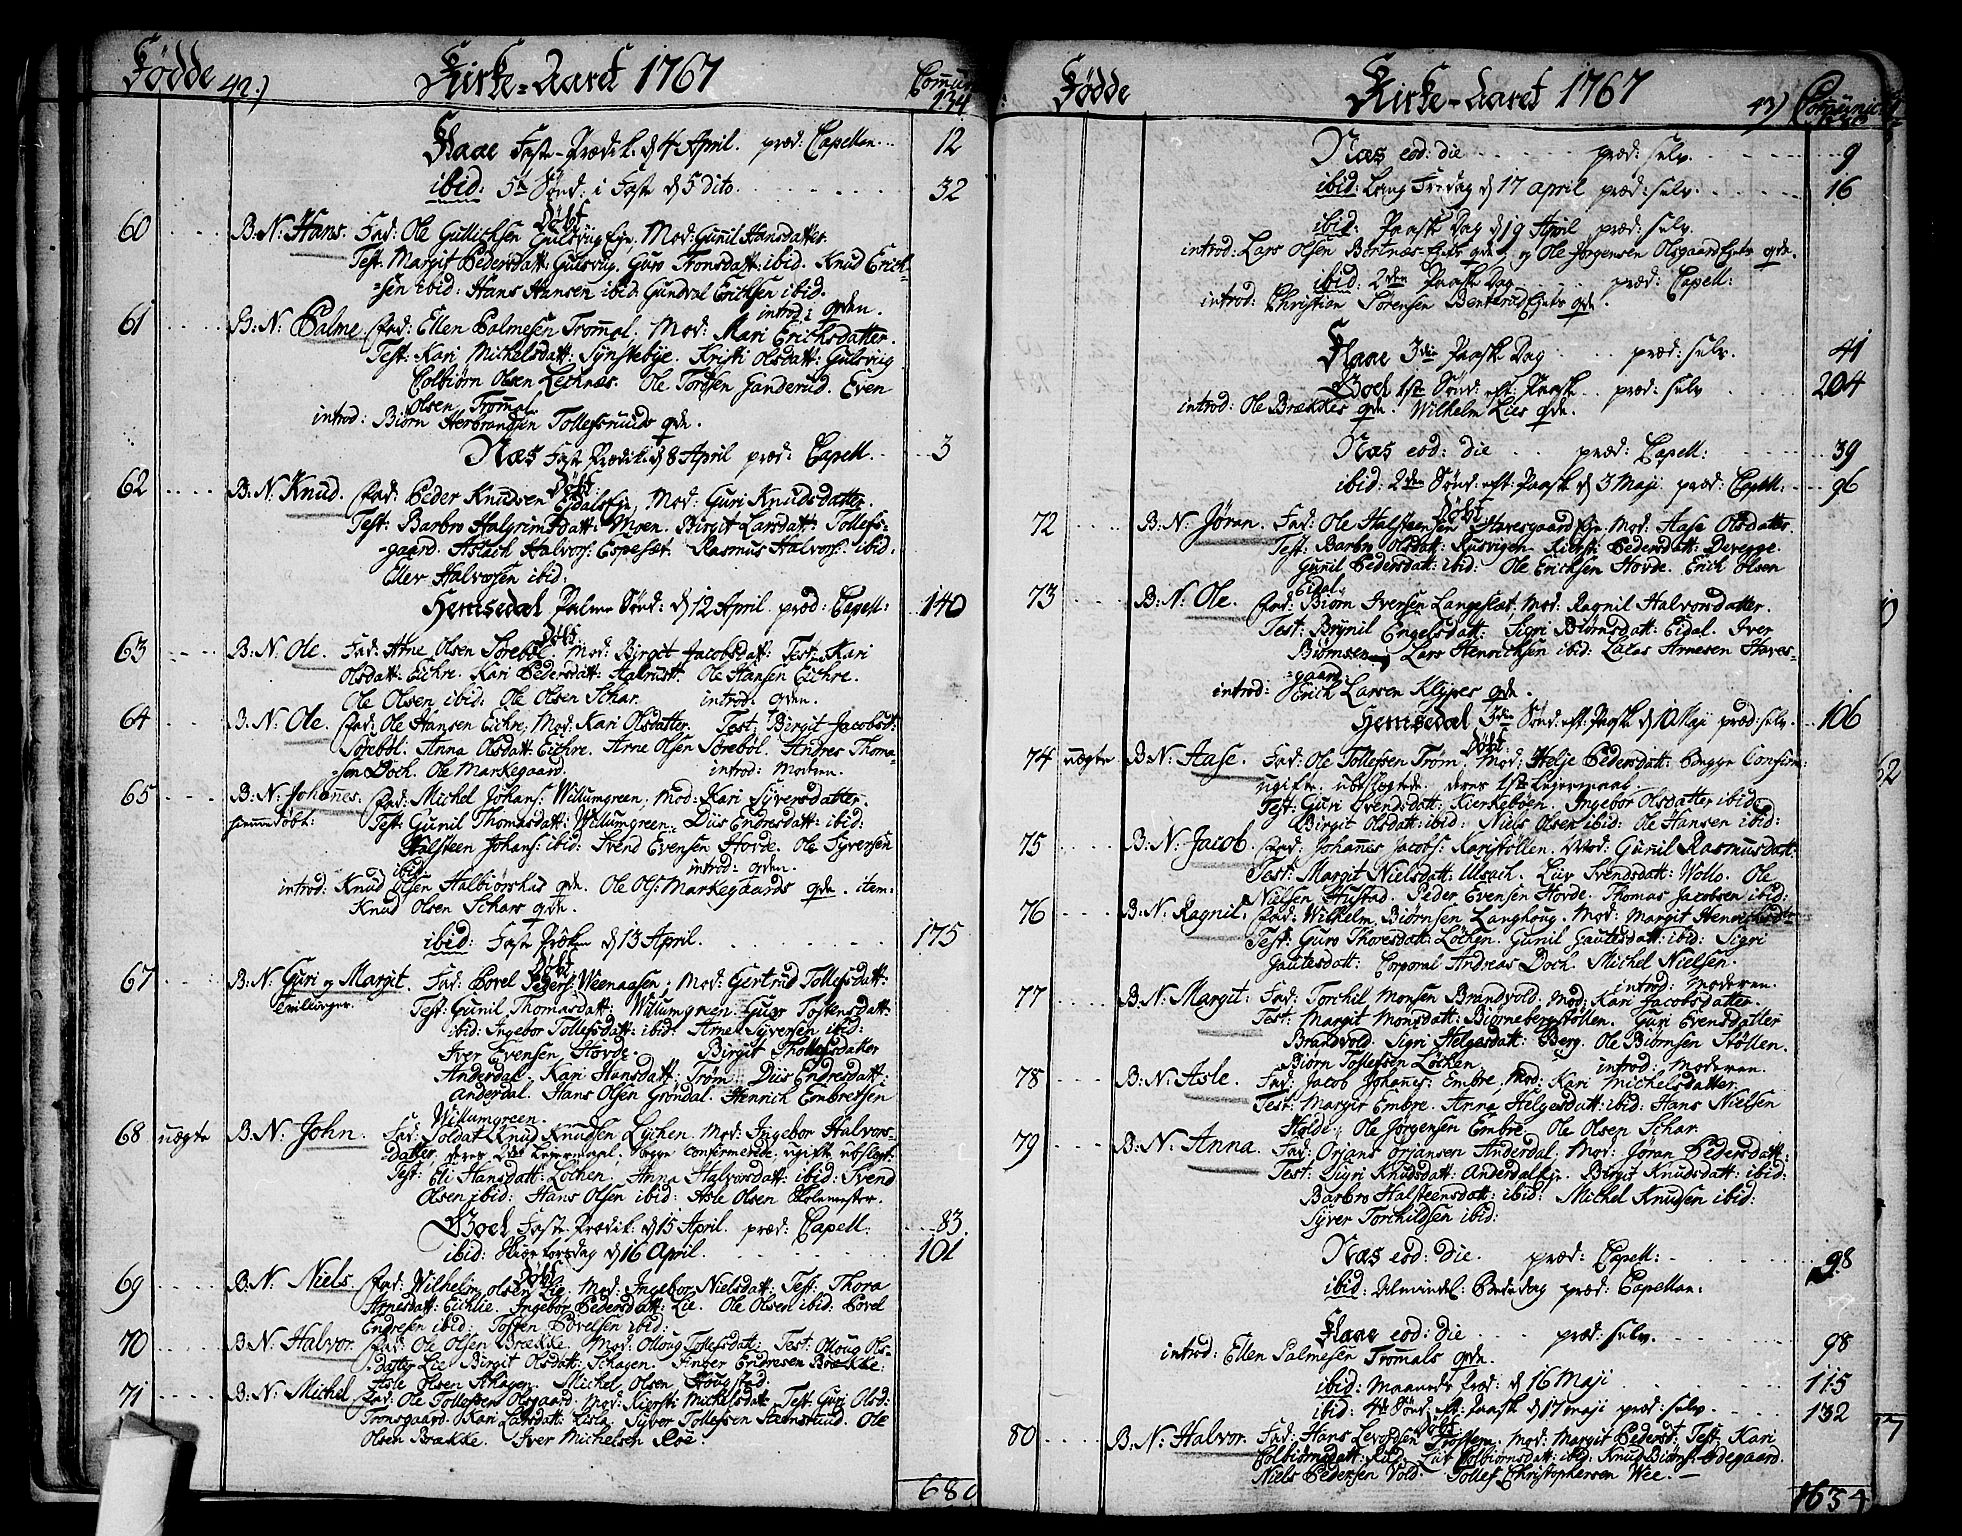 Födde 42.) Kirke-Aaret 1767 Comun
134
Flaae Faste-Prædik. d 4 April. præd: Capellan... 12
ibid: 5te Sönd: i Faste d 5 dito. 32
Döbt
60 B:N: Hans. Fad: Ole Gullichsen Gulsvig Eje, Mod: Gunil Hansdatter.
Test: Margit Pedersdatt: Gulsvig. Guro Tronsdatt: ibid. Knud Erich-
-sen ibid: Hans Hansen ibid: Gundval Erichsen ibid.
introd: qvden.
61 B:N: Palme Fad: Ellen Palmesen Trommal. Mod: Kari Erichsdatter.
Test: Kari Michelsdatt: Synstebye. Kristi Olsdatt: Gulsviig
Colbiörn Olsen Leknæs. Ole Tordsen Ganderud. Even
Olsen Trommal.
introd: Biörn Herbrandsen Tollefsruuds qvde.
Næs Faste Prædik. d 8 April præd: Capell. 3
Döbt
62 B:N: Knud. Fad: Peder Knudsen Eidals Eje, Mod: Guri Knudsdatter
Test: Barbro Halgrimsdatt: Moen. Birgit Larsdatt: Tollefs-
-gaard. Aslach Halvors: Espeset. Rasmus Halvors: ibid.
Eller Halvorsen ibid:
Hemsedal Palme Sönd: d 12 April præd: Capell: 140
Döbt
63 B:N: Ole. Fad: Arne Olsen Söreböl Mod: Birgit Jacobsdatt: Test: Kari
Olsdatt: Eichre. Kari Pedersdatt: Halrustt. Ole Hansen Eichre.
Ole Olsen ibid: Ole Olsen Schar. introd: qvden.
64 B:N: Ole Fad: Ole Hansen Eichre, Mod: Kari Olsdatter. Test: Birgit Jacobsd:
Söreböl. Anna Olsdatt: Eichre. Arne Olsen Sörebol. Andres Thoma-
-sen Doch. Ole Markegaard. introd: Modren.
65 B:N: Johannes. Fad: Michel Johans: Willumgreen, Mod: Kari Syversdatter.
hiemmedöbt: Test: Gunil Thomasdatt: Willumgreen. Diis Endresdatt: ibid:
Halsteen Johans: ibid: Svend Evensen Hovde. Ole Syversen
ibid. introd: qvden.
introd: Knud Olsen Halbiörshus qvde. Ole Ols: Markegaards qvde. item:
Knud Olsen Schars qvde.
ibid: Faste Pröken d 13 April. 175
Döbt
67 B:N: Guri og Margit. Fad: Povel Peders: Weenaasen; Mod: Gertrud Tollefsdatt:
Tvillinger. Test: Gunil Thomasdatt: Willumgreen. Guro Tostensdatt:
ibid: Ingebor Tollefsdatt: ibid: Arne Syversen ibid:
Iver Evensen Hovde. Birgit Thollefsdatter
Anderdal. Kari Hansdatt: Tröm. Diis Endresdatt:
Anderdal. Hans Olsen Gröndal. Henrich Embretsen
Willumgreen.
68 uægte B:N: John. Fad: Soldat Knud Knudsen Lychen. Mod: Ingebor Halvors-
datter, deres Leiermaal. begge confirmerede, ugifte ubslegt:
Test: Eli Hansdatt: Löchen. Anna Halvorsdatt: ibid: Svend
Olsen ibid: Hans Olsen ibid: Asle Olsen Skolemester.
Goel Faste Prædik. d 15 April. præd: Capell. 83
ibid: Skiær torsdag d 16 April. 101
Döbt
69 B:N: Niels Fad: Wilhelm Olsen Lie, Mod: Ingebor Nielsdatt: Test: Thora
Arnesdatt: Eichlie. Ingebor Pedersdatt: Lie. Ole Olsen ibid: Povel
Endresen ibid: Tosten Povelsen ibid:
70 B:N: Halvor. Fad: Ole Olsen Brække. Mod: Olloug Tollefsdatt: Test: Olloug Ols-
-datter Lie. Birgit Olsdatt: Schagen. Finger Endresen Brække:
Asle Olsen Schagen. Michel Olsen Hougstad:
71 B:N: Michel Fad: Ole Tollefsen Olsgaard. Mod: Kiersti Michelsdatt: Test: Guri Olsd:
Tronsgaard. Kari Larsdatt: Lisla. Syver Tollefsen Hamsrud. Ole
Olsen Brække. Iver Michelsen Roe.
680
Födde Kirke-Aaret 1767 43) Comunic
Næs eod: die præd: selv. 9
ibid: Lang Fredag d 17 april præd: selv. 16
ibid: Paaske Dag d 19 April præd: selv.
introd: Lars Olsen Börtnæs-Ejets qvde, og Ole Jörgensen Olsgaard Ejets qvde.
ibid: 2den Paaske Dag præd: Capell:
introd: Christian Sörensen Benterud Ejets qvde.
Flaae 3die Paaske Dag præd: selv. 41
Goel 1ste Sönd: eft: Paaske præd: selv 204
introd: Ole Brækkes qvde. Wilhelm Lies qvde.
Næs eod: die præd: Capell: 39
ibid: 2den Sönd: eft: Paask: d 3 Maji præd: Capell: 96
Döbt
72 B:N: Jöran. Fad: Ole Halsteensen Havesgaard Eje. Mod: Aase Olsdatter.
Test: Barbro Olsdatt: Rusvigen. Kiersti Pedersdatt: Devegge.
Gunil Pedersdatt: ibid: Ole Erichsen Hovde. Erich Olsen
Eidal.
73 B:N: Ole. Fad: Biörn Iversen Langeslet, Mod: Ragnil Halvorsdatter.
Test: Brynil Engelsdatt: Sigri Biörnsdatt: Eidal. Iver
Biörnsen Lars Henrichsen ibid: Lucas Arnesen Haves-
-gaard.
introd: Erich Larsen Klypes qvde.
Hemsedal 3die Sönd: eft: Paaske d 10 Maji præd: selv. 106
Döbt:
74 uægte B:N: Aase. Fad: Ole Tollefsen Tröm. Mod: Helje Pedersdatt: begge Confirm:
ugifte, ubeslegtede, deres 1ste Leiermaal.
Test: Guri Svendsdatt: Kierkeböen. Ingebor Olsdatter ibid:
Birgit Olsdatt: ibid: Niels Olsen ibid: Ole Hansen ibid:
75 B:N: Jacob. Fad: Johannis Jacobs: Karistöllen. Mod: Gunil Rasmusdatt:
Test: Margit Nielsdatt: Ulsach. Liv Svendsdatt: Wollo. Ole
Nielsen Hustad. Peder Evensen Hovde. Thomas Jacobsen ibid:
76 B:N: Ragnil. Fad: Wilhelm Biörnsen Langhoug. Mod: Margit Henrichsdtr
Test: Guro Thoresdatt: Löchen. Gunil Gautesdatt: ibid: Sigri
Gautesdatt: Corporal Andreas Doch. Michel Nielsen.
introd: Moderen.
77 B:N: Margit: Fad: Torchil Monsen Brandvold. Mod: Kari Jacobsdatter.
Test: Margit Monsdatt: Biörnebergstöllen. Guri Evensdatter
Brandvold. Sigri Helgesdatt: Berg. Ole Biörnsen Stöllen.
Biörn Tollefsen Löchen. introd: Moderen.
78 B:N: Asle. Fad: Jacob Johannis: Embre, Mod: Kari Michelsdatter.
Test: Margit Embre. Anna Helgesdatt: ibid: Hans Nielsen
Holde. Ole Jörgensen Embre. Ole Olsen Schar.
79 B:N: Anna. Fad: Orjans Orjansen Anderdal. Mod: Jöran Pedersdatt:
Test: Sigri Knudsdatt: Anderdal Eje. Birgit Knudsdatt: ibid:
Barbro Halsteensdatt: ibid: Michel Knudsen ibid:
Syver Torchildsen ibid:
Næs eod: die. præd: Capell: 98
ibid: Almindel: Bededag præd: Capellan:
Flaae eod: die præd: selv. 98
introd: Ellen Palmesen Trommals qvde.
ibid: Maaneds Præd: d 16 Maji 115
ibid: 4de Sönd: eft: Paask d 17 maji præd: selv. 132
Döbt
80 B:N: Halvor. Fad: Hans Levordsen Mod: Margit Pedersd: Test: Kari
Colbiörnsdatt: Liv Colbiörnsdatt: ibid: Knud Biörns: Ödegaard.
Niels Pedersen Vold. Tollef Christophersen Wee. —
1634